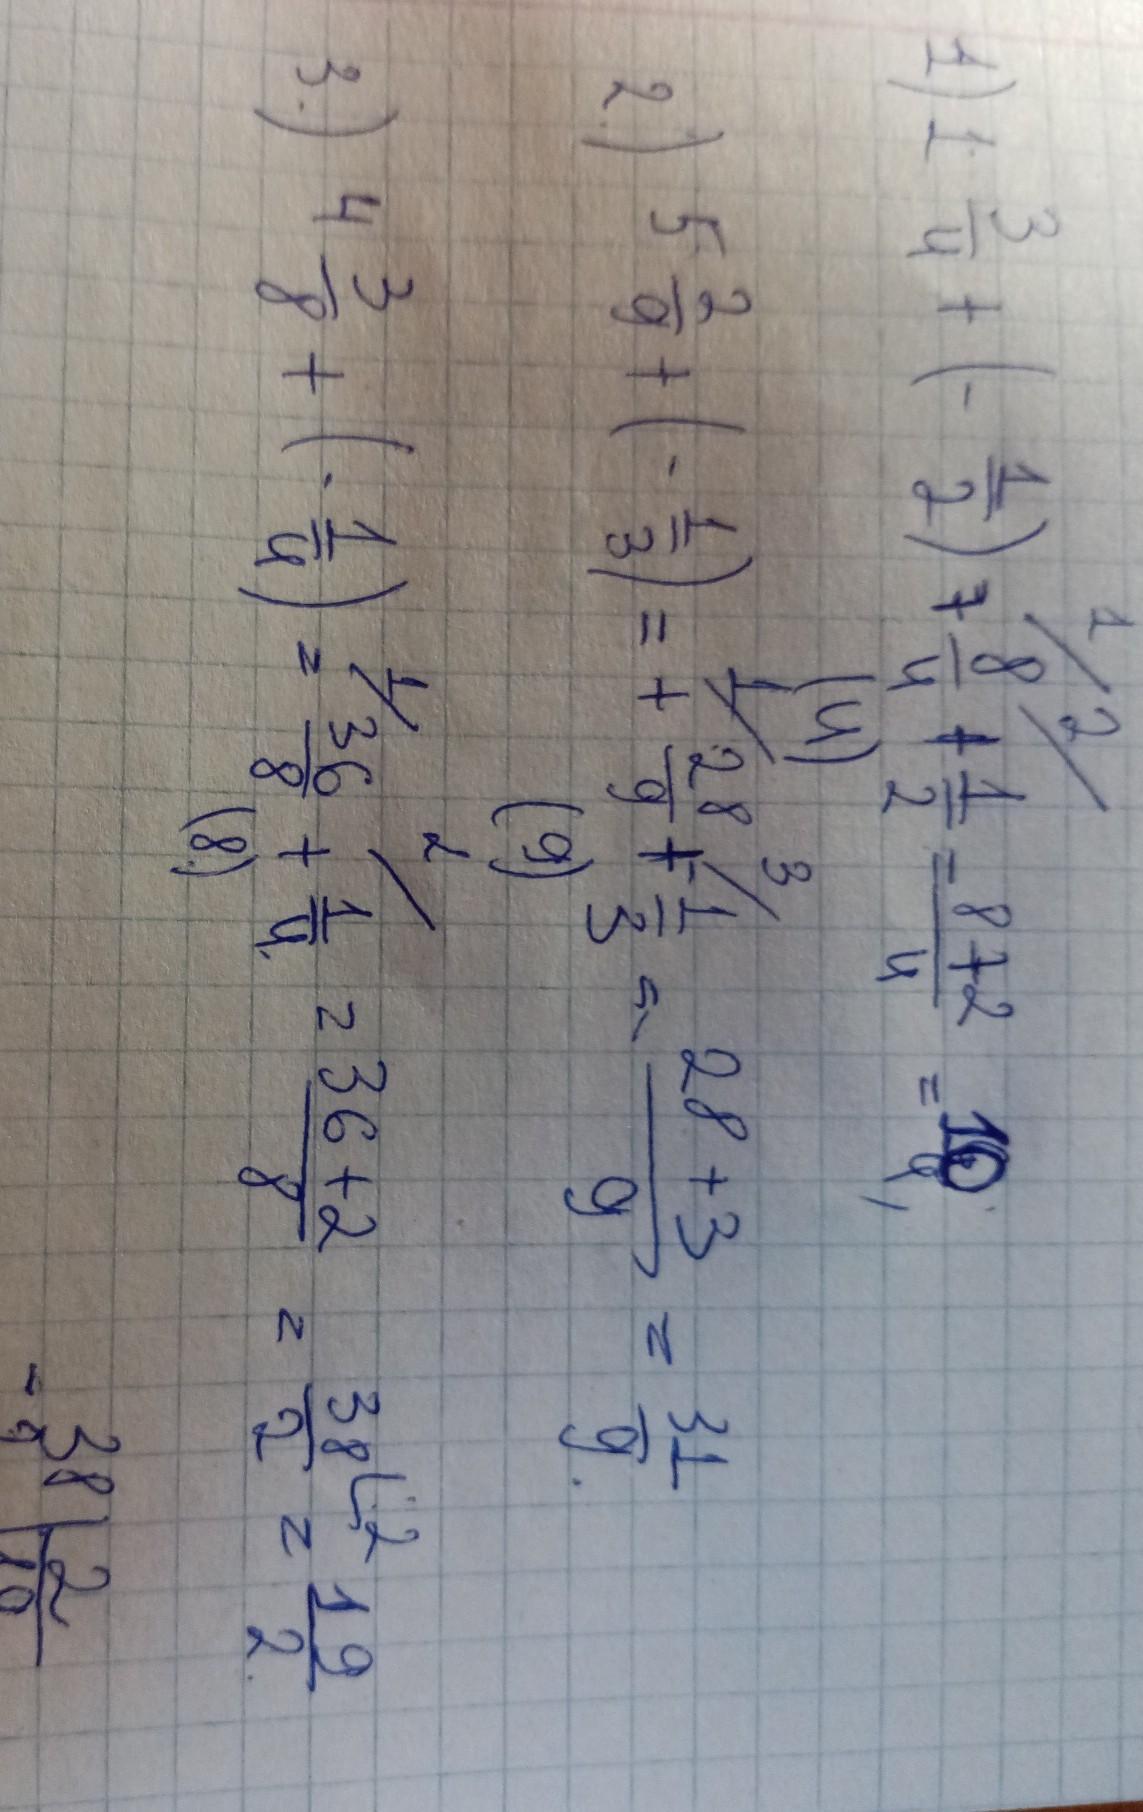 1) 1 3/4 + (- 1/2) + 8/4 + 1/2 = 8+2/4 = 10/4
1/ 2/
(4)
2.) 5 2/9 + (- 1/3) = + 28/9 + 1/3 = 28+3/9 = 31/9.
1/ 3/
(9)
3.) 4 3/8 + (- 1/4) = 36/8 + 1/4 = 36+2/8 = 38/2 (:2 = 19/2.
1/ 2/
(8)
38 | 2